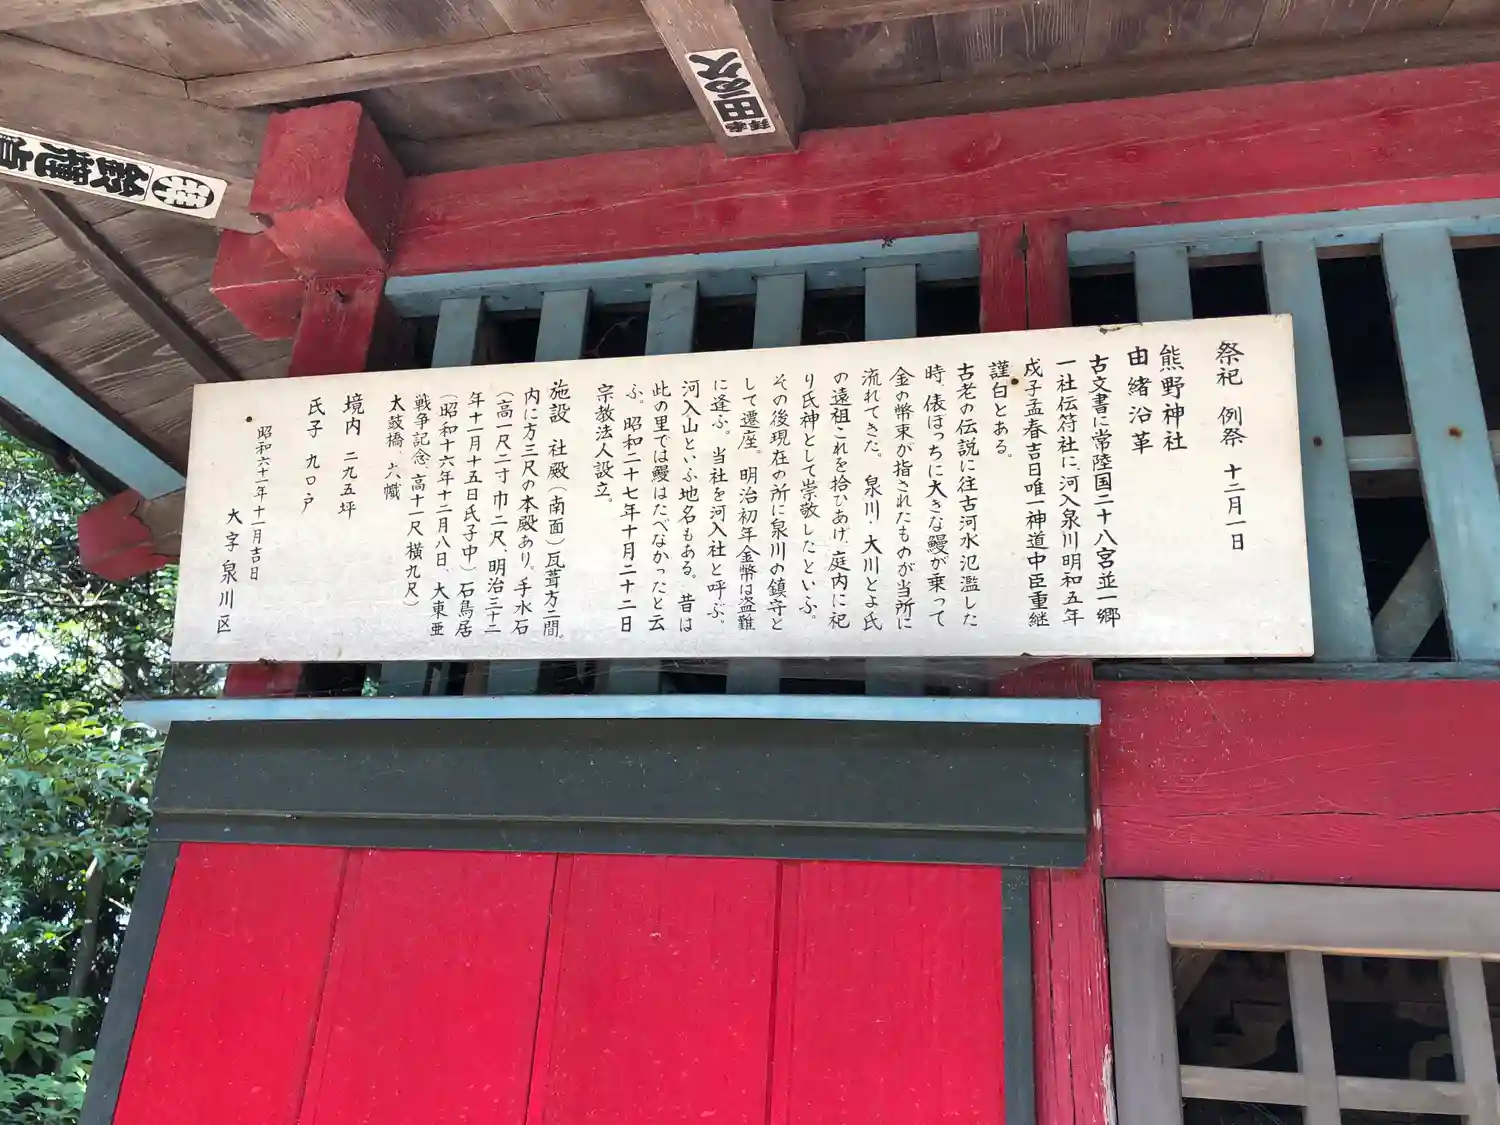 祭祀 例祭 十二月一日
熊野神社
由緒沿革
古文書に常陸国二十八宮並一郷
一社伝符社に、河入泉川明和五年
戊子孟春吉日唯一神道中臣重継
謹白とある。
古老の伝説に往古河水氾濫した
時、俵ぼっちに大きな鰻が乗って
金の幣束が指されたものが当所に
流れてきた。泉川・大川とよ氏
の遠祖これを拾ひあげ、庭内に祀
り氏神として崇敬したといふ。
その後現在の所に泉川の鎮守と
して遷座。明治初年金幣は盗難
に逢ふ。当社を河入社と呼ぶ、
河入山といふ地名もある。昔は
此の里では鰻はたべなかったと云
ふ。昭和二十七年十月二十二日
宗教法人設立。
施設 社殿(南面)瓦葺方二間。
内に方三尺の本殿あり。手水石
(高一尺二寸巾二尺、明治三十二
年十一月十五日氏子中)石鳥居
(昭和十六年十二月八日、大東亜
戦争記念、高十一尺横九尺)
太鼓橋、六幟
境内 二九五坪
氏子 九〇戸
昭和六十一年十一月吉日
大字泉川区